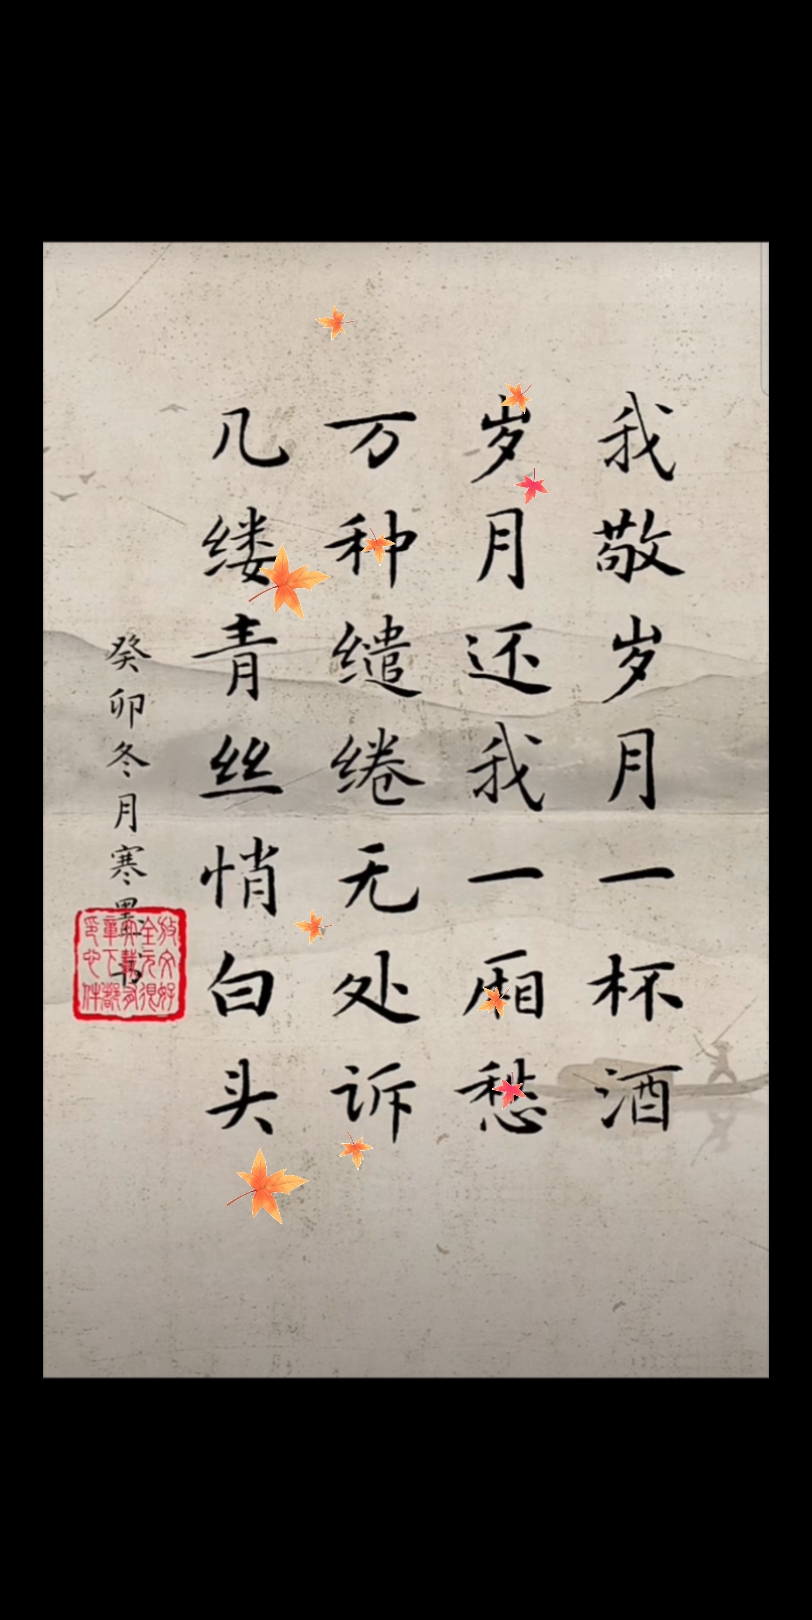 我敬岁月一杯酒
岁月还我一厢愁
万种缱绻无处诉
几缕青丝悄白头
癸卯冬月寒墨书